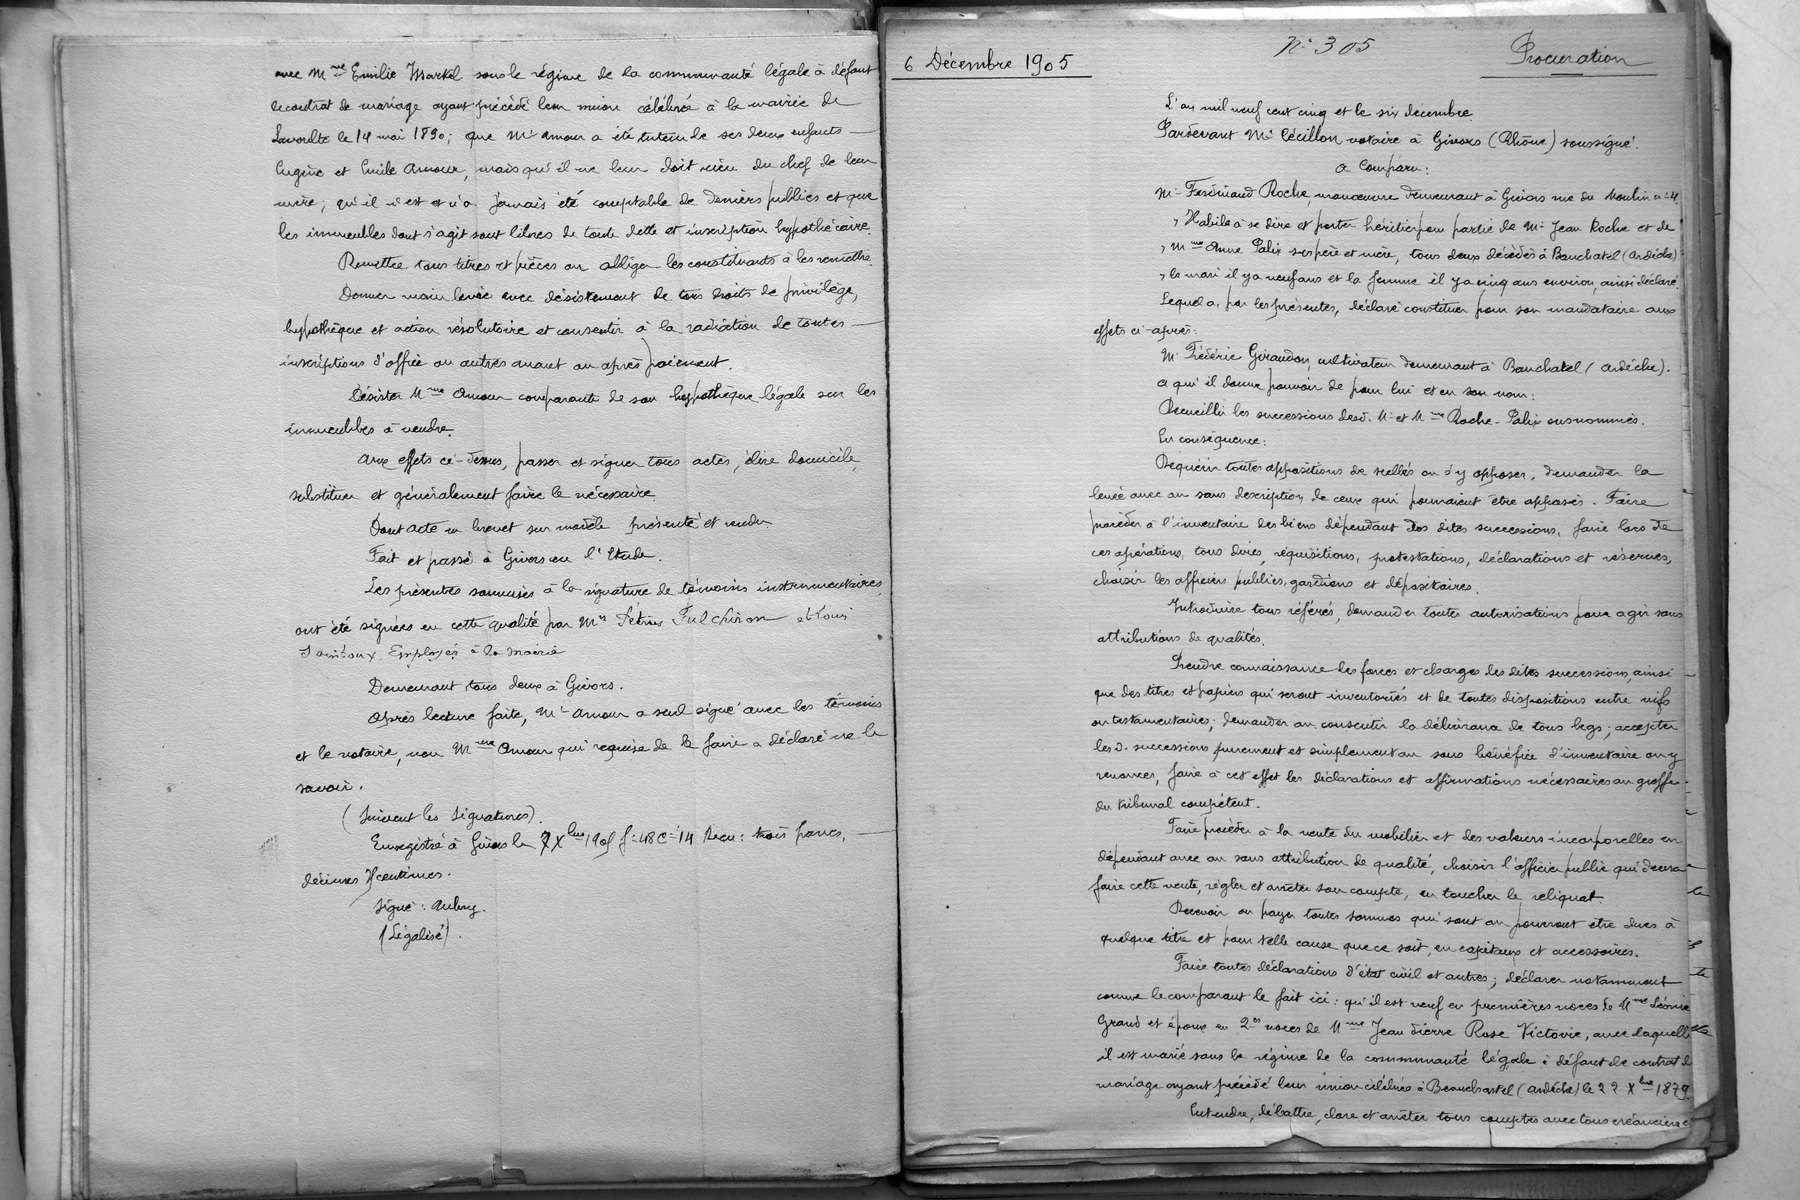 avec Mme Emilie Markel sous le régime de la communauté légale à défaut
de contrat de mariage ayant précédé leur union célébrée à la mairie de
Lavoulte le 14 mai 1890; que Mr Amour a été tuteur de ses deux enfants —
Eugène et Emile Amour, mais qu'il ne leur doit rien du chef de leur
mère; qu'il n'est et n'a jamais été comptable de deniers publics et que
les immeubles dont s'agit sont libres de toute dette et inscription hypothécaire.
Remettre tous titres et pièces ou obliger les constituants à les remettre.
Donner main levée avec désistement de tous droits de privilège,
hypothèque et action résolutoire et consentir à la radiation de toutes —
inscriptions d'office ou autres avant ou après paiement.
Désister Mme Amour comparante de son hypothèque légale sur les
immeubles à vendre.
Aux effets ci-dessus, passer et signer tous actes, élire domicile,
substituer et généralement faire le nécessaire.
Dont acte en brevet sur modèle présenté et rendu
Fait et passé à Givors en l'Etude.
Les présentes soumises à la signature de témoins instrumentaires
ont été signées en cette qualité par Mrs Pétrus Fulchiron et Louis
Employés à la mairie
Demeurant tous deux à Givors.
Après lecture faite, Mr Amour a seul signé avec les témoins
et le notaire, non Mme Amour qui requise de le faire a déclaré ne le
savoir.
(Suivent les signatures).
Enregistré à Givors le 7 Xbre 1905 f° 48 C° 14 Reçu: trois francs, —
décimes 75 centimes.
Signé: Aubry.
(Légalisé).
6 Décembre 1905
N° 305
Procuration
L'an mil neuf cent cinq et le six décembre
Pardevant Me Cécillon notaire à Givors (Rhône) soussigné.
a Comparu:
Mr Ferdinand Roche, manoeuvre demeurant à Givors rue du Moulin n°
" Habile à se dire et porter héritier pour partie de Mr Jean Roche et de
" Mme Anne Palix ses père et mère, tous deux décédés à Bauchatel (Ardèche)
" le mari il y a neuf ans et la femme il y a cinq ans environ, ainsi déclaré.
Lequel a, par les présentes, déclaré constituer pour son mandataire aux
effets ci-après:
Mr Frédéric Giraudon, cultivateur demeurant à Bauchatel (Ardèche).
A qui il donne pouvoir de pour lui et en son nom:
Recueillir les successions desd. Mr et Mme Roche-Palix susnommés.
En conséquence:
Requérir toutes appositions de scellés ou s'y opposer, demander la
levée avec ou sans description de ceux qui pourraient être apposés. Faire
procéder à l'inventaire des biens dépendant des dites successions, faire lors de
ces opérations, tous dires, réquisitions, protestations, déclarations et réserves,
choisir les officiers publics, gardiens et dépositaires.
Introduire tous référés, demander toutes autorisations pour agir sans
attributions de qualités.
Prendre connaissance des forces et charges des dites successions, ainsi
que des titres et papiers qui seront inventoriés et de toutes dispositions entre vifs
ou testamentaires; demander ou consentir la délivrance de tous legs; accepter
les d. successions purement et simplement ou sous bénéfice d'inventaire ou y
renoncer, faire à cet effet les déclarations et affirmations nécessaires au greffe
du tribunal compétent.
Faire procéder à la vente du mobilier et des valeurs incorporelles en
dépendant avec ou sans attribution de qualité, choisir l'officier public qui devra
faire cette vente, régler et arrêter son compte, en toucher le reliquat
Recevoir ou payer toutes sommes qui sont ou pourront être dues à
quelque titre et pour telle cause que ce soit, en capitaux et accessoires.
Faire toutes déclarations d'état civil et autres; déclarer notamment
comme le comparant le fait ici: qu'il est veuf en premières noces de Mme Léonie
Grand et époux en 2es noces de Mme Jean Pierre Rose Victorie, avec laquelle
il est marié sous le régime de la communauté légale à défaut de contrat de
mariage ayant précédé leur union célébrée à Beauchastel (Ardèche) le 22 Xbre 1879.
Entendre, débattre, clore et arrêter tous comptes avec tous créanciers